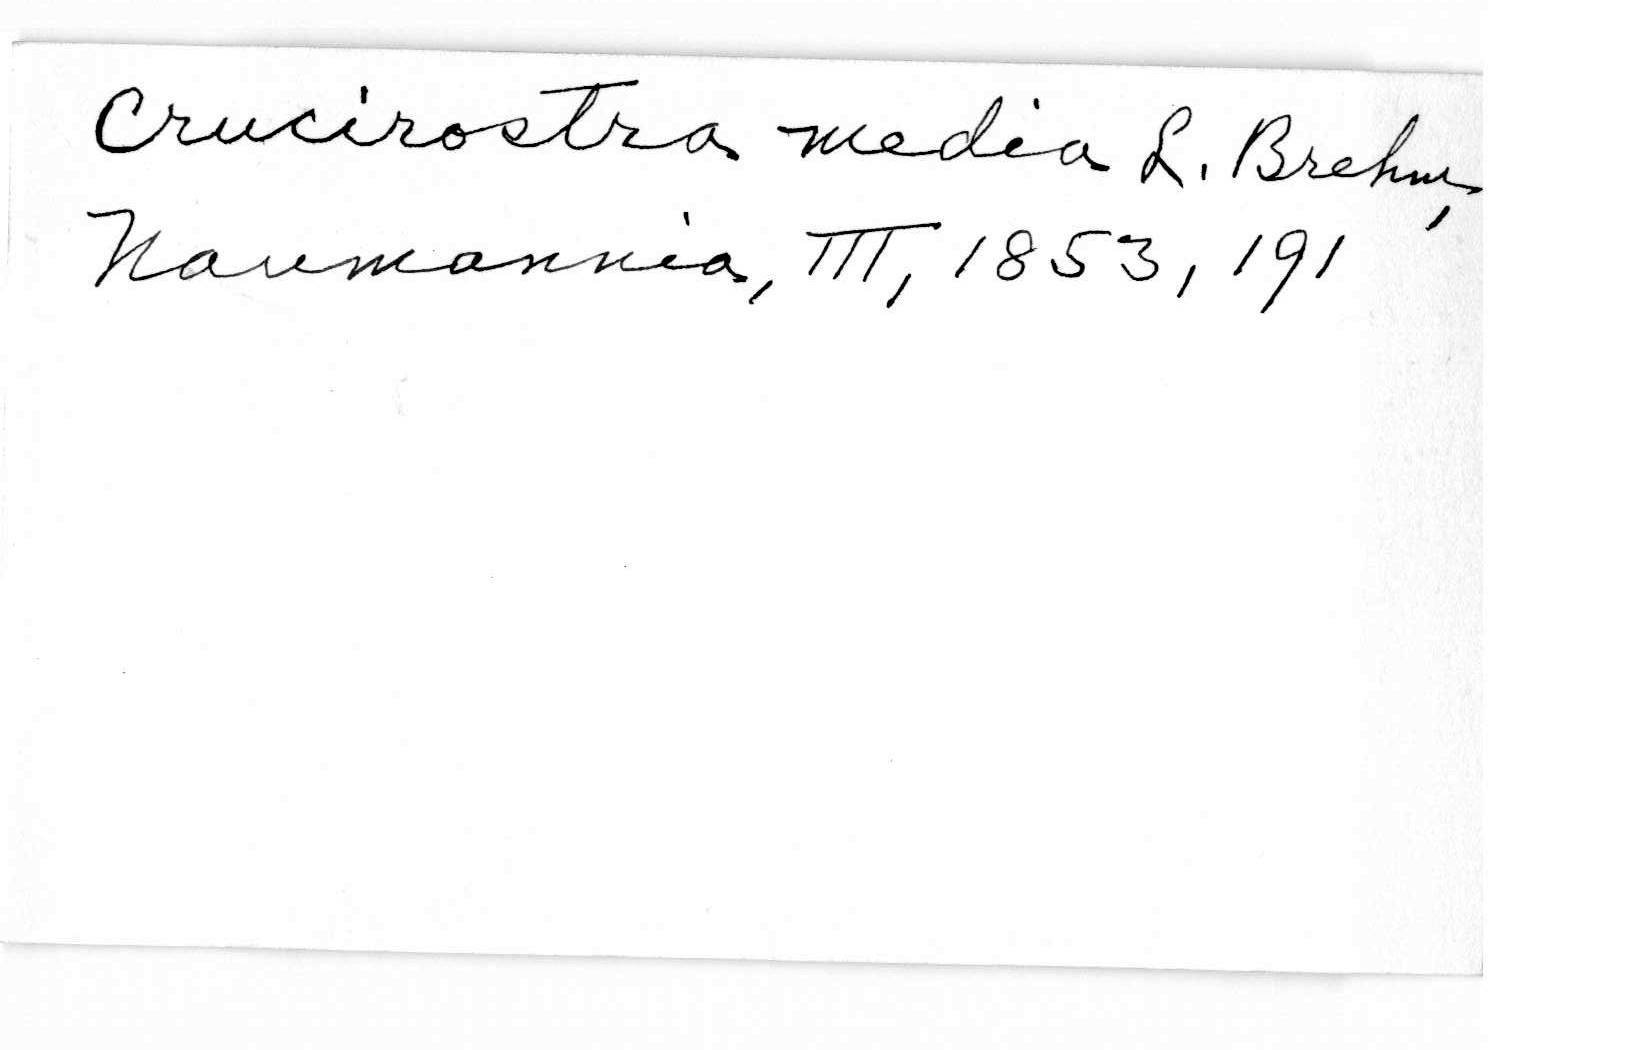 Crucirostra media L. Brehm,
Naumannia, III, 1853, 191